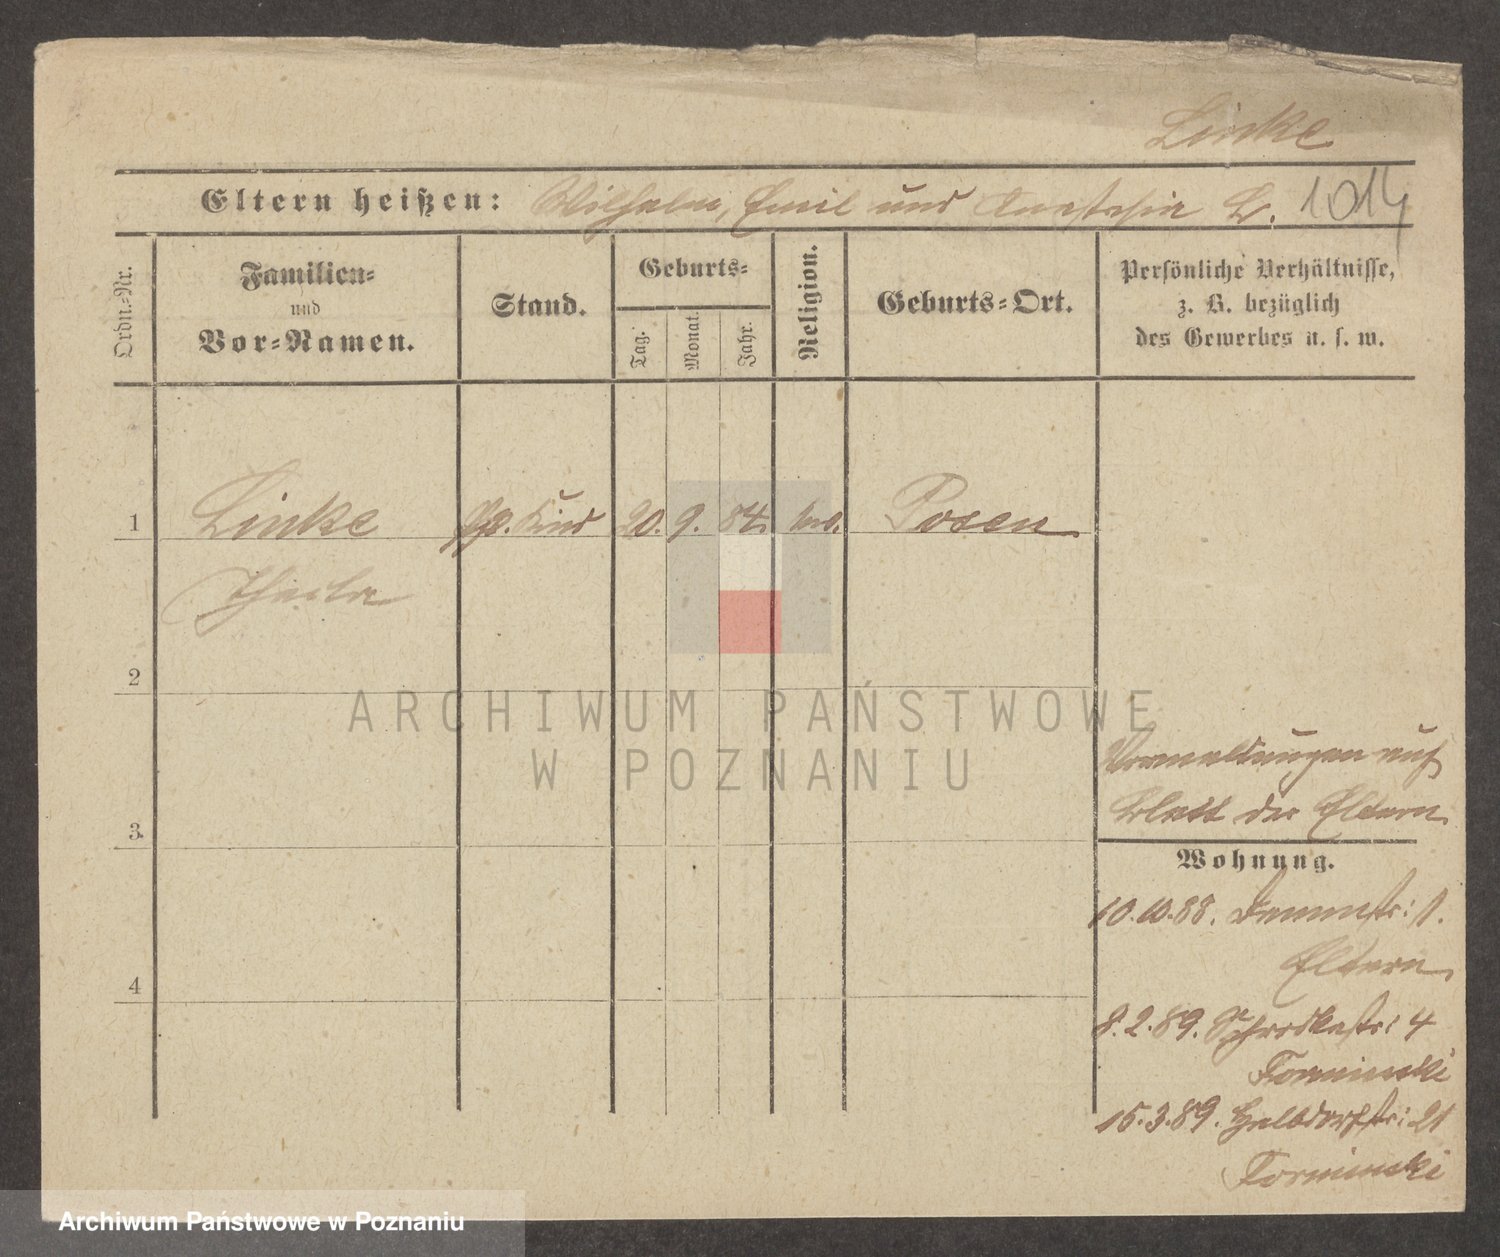 Linke
Eltern heißen: Wilhelm, Emil und Anastasia L. 1014
Ordn.-Nr.
Familien-
und
Vor-Namen.
Stand.
Geburts-
Tag.
Monat.
Jahr.
Religion.
Geburts-Ort.
Persönliche Verhältnisse,
z. B. bezüglich
des Gewerbes u. s. w.
1 Linke Kind 20. 9. 84. Posen
2
3
4
Vermeldungen auf
Blatt der Eltern
Wohnung.
10.10.88. Dammstr: 1.
Eltern
8.2.89. Schrodkastr: 4
15.3.89. Halbdorfstr: 21
ARCHIWUM PAŃSTWOWE
W POZNANIU
Archiwum Państwowe w Poznaniu